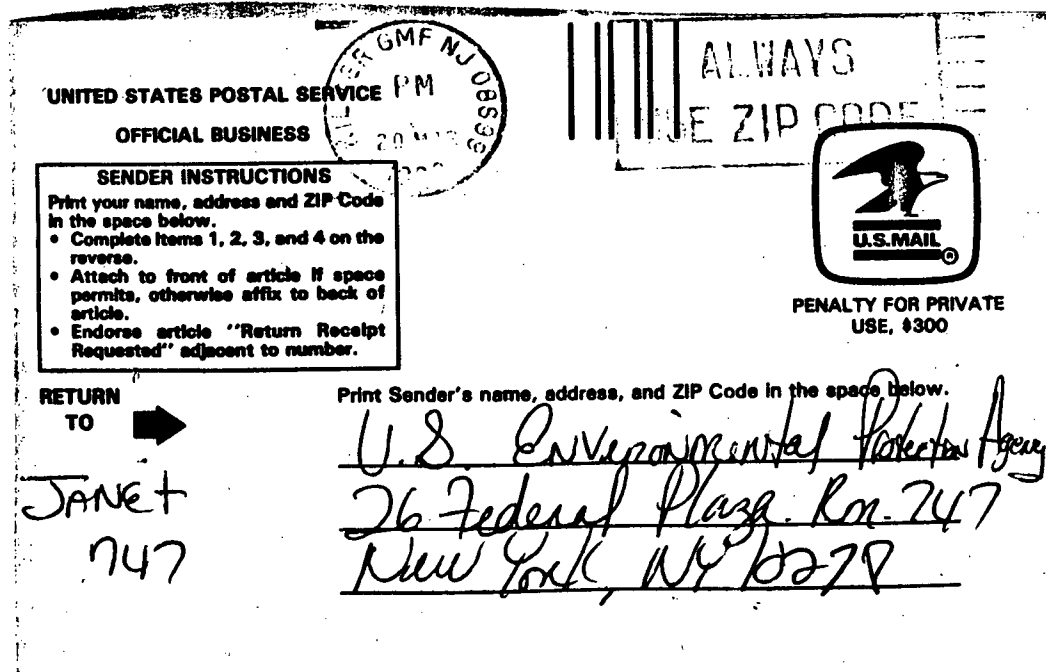 GMF NJ 08899
PM
20 MAR
ALWAYS
USE ZIP CODE
UNITED STATES POSTAL SERVICE
OFFICIAL BUSINESS
SENDER INSTRUCTIONS
Print your name, address and ZIP Code
in the space below.
• Complete items 1, 2, 3, and 4 on the
reverse.
• Attach to front of article if space
permits, otherwise affix to back of
article.
• Endorse article "Return Receipt
Requested" adjacent to number.
U.S.MAIL
®
PENALTY FOR PRIVATE
USE, $300
RETURN
TO
Print Sender's name, address, and ZIP Code in the space below.
U.S. Environmental Protection Agency
26 Federal Plaza. Rm. 747
New York, NY 10278
JANET
747